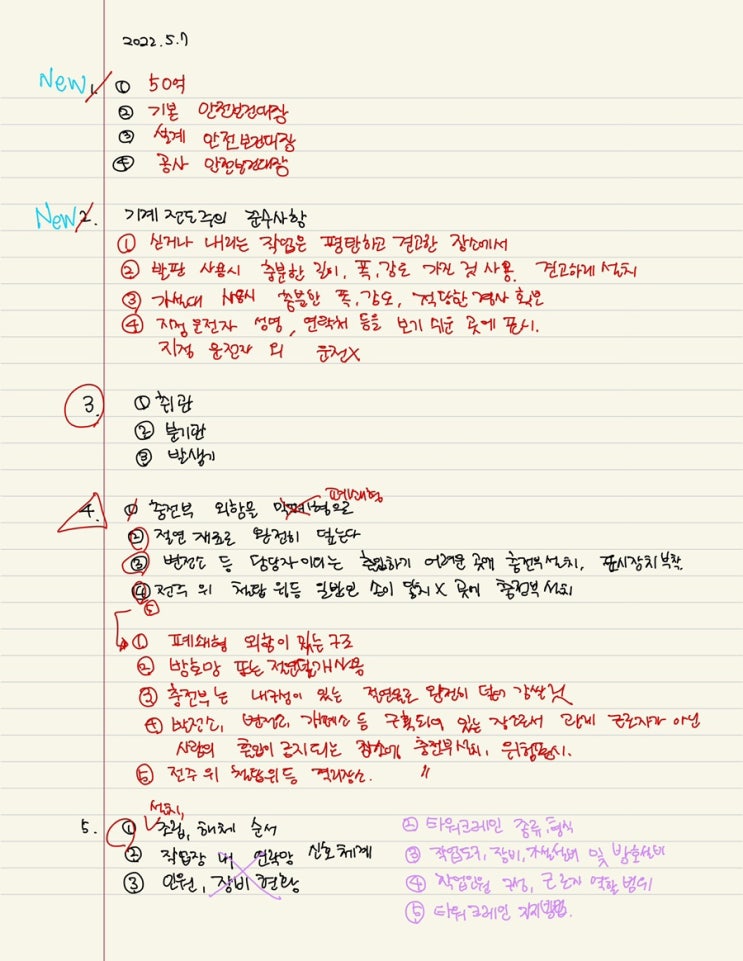 2022.5.7
New 1. ① 50억
② 기본 안전보건대장
③ 설계 안전보건대장
④ 공사 안전보건대장
New 2. 기계 전도주의 준수사항
① 싣거나 내리는 작업은 평탄하고 견고한 장소에서
② 발판 사용시 충분한 길이, 폭, 강도 가진 것 사용. 견고하게 설치
③ 가설대 사용시 충분한 폭, 강도, 적당한 경사 확보
④ 지정운전자 성명, 연락처 등을 보기 쉬운 곳에 표시.
지정 운전자 외 운전X
3. ① 취관
② 분기관
③ 발생기
4. ① 충전부 외함을 폐쇄형으로
② 절연 재료로 완전히 덮는다
③ 변전소 등 담당자 이외는 출입하기 어려운 곳에 충전부 설치, 표시장치 부착
④ 전주 위 철탑 위등 일반인 손이 닿지 X 곳에 충전부 설치
⑤
① 폐쇄형 외함이 있는 구조
② 방호망 또는 절연덮개 사용
③ 충전부는 내구성이 있는 절연물로 완전히 덮어 감쌀 것
④ 발전소, 변전소, 개폐소 등 구획되어 있는 장소로서 관계 근로자가 아닌
사람의 출입이 금지되는 장소에 충전부 설치, 위험표시.
⑤ 전주 위 철탑위등 격리장소. 〃
설치,
5. ① 조립, 해체 순서
② 작업장 내 연락망 신호체계
③ 인원, 장비 현황
② 타워크레인 종류, 형식
③ 작업도구, 장비, 가설설비 및 방호설비
④ 작업인원 구성, 근로자 역할 범위
⑤ 타워크레인 지지방법.